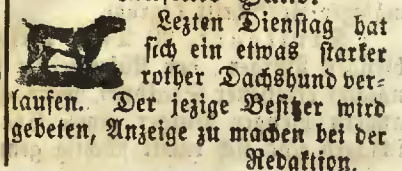 Lezten Dienstag hat
sich ein etwas starker
rother Dachshund ver-
laufen. Der jezige Besitzer wird
gebeten, Anzeige zu machen bei der
Redaktion.